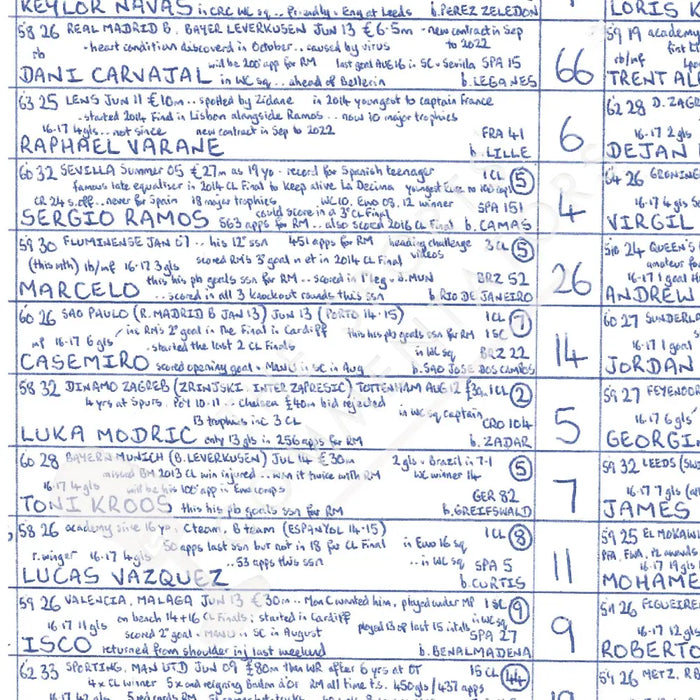 KEYLOR NAVAS in CRC WC sq ... Friendly v Eng at Leeds b. PEREZ ZELEDON
LORIS K
58 26 REAL MADRID B, BAYER LEVERKUSEN JUN 13 €6.5m - new contract in Sep to 2022
rb - heart condition discoverd in October.. caused by virus
will be 200th app for RM last goal AUG 16 in SC v Sevilla SPA 15
DANI CARVAJAL in WC sq ... ahead of Bellerin b. LEGANES
66
59 19 academy
first
rb/mf
TRENT AL
63 25 LENS JUN 11 €10m.. spotted by Zidane in 2014 youngest to captain France
- started 2014 Final in Lisbon alongside Ramos.. now 10 major trophies
16-17 4gls.. not since new contract in Sep to 2022 FRA 41
RAPHAEL VARANE b. LILLE
6
62 28 D. ZAG
16-17 2 gls
DEJAN
60 32 SEVILLA Summer 05 €27m as 19 yo - record for Spanish teenager 1 CL 5
famous late equaliser in 2014 CL Final to keep alive La Decima youngest Euro to 100 caps
CR 24 s.off.. never for Spain 18 major trophies WC10, Euro 08, 12 winner SPA 151
could score in a 3rd CL Final
SERGIO RAMOS 563 apps for RM .. also scored 2016 CL Final b. CAMAS
4
64 26 GRONING
16-17 4 gls
VIRGIL
59 30 FLUMINENSE JAN 07 .. his 12th ssn 451 apps for RM heading challenge videos 3 CL 5
(this mth) lb/mf 16-17 3gls scored RM's 3rd goal in et in 2014 CL Final
this his pb goals ssn for RM .. scored in 1st leg v B. MUN BRZ 52
MARCELO ... scored in all 3 knockout rounds this ssn b. RIO DE JANEIRO
26
24 QUEEN'S
amateur fo
16-17 1 goal
ANDREW
60 26 SAO PAULO (R. MADRID B JAN 13) JUN 13 (PORTO 14-15) 1 CL 7
inc RM's 2nd goal in the Final in Cardiff this his pb goals ssn for RM 1 SC
mf 16-17 6gls - started the last 2 CL Finals in WC sq BRZ 22
CASEMIRO scored opening goal v ManU in SC in Aug b. SAO JOSE DOS CAMPOS
14
60 27 SUNDERLA
16-17 1 goal
JORDAN
58 32 DINAMO ZAGREB (ZRINJSKI, INTER ZAPRESIC) TOTTENHAM AUG 12 £30m 1 CL 2
4 yrs at Spurs.. POY 10-11 .. Chelsea £40m bid rejected in WC sq captain
13 trophies inc 3 CL CRO 104
LUKA MODRIC only 13 gls in 256 apps for RM b. ZADAR
5
59 27 FEYENOOR
16-17 6 gls
GEORGI
60 28 BAYERN MUNICH (B. LEVERKUSEN) JUL 14 €30m 2 gls v Brazil in 7-1 5
missed BM 2013 CL win injured.. won it twice with RM WC winner 14
16-17 4gls will be his 100th app in Euro comps GER 82
TONI KROOS this his pb goals ssn for RM b. GREIFSWALD
7
59 32 LEEDS (SW
16-17 7gls
JAMES
58 26 academy since 16 yo, C team, B team (ESPANYOL 14-15) 1 CL 8
50 apps last ssn but not in 18 for CL Final in Euro 16 sq
r. winger 16-17 4gls ... 53 apps this ssn .. in WC sq SPA 5
LUCAS VAZQUEZ b. CURTIS
11
59 25 EL MOKAWL
PFA, FWA, PL awards
16-17 19 gls
MOHAME
59 26 VALENCIA, MALAGA JUN 13 €30m .. Man C wanted him, played under MP 1 SC 9
16-17 11 gls on bench 14+16 CL Finals; started in Cardiff
scored 2nd goal v ManU in SC in August played 13 of last 15 intnls in WC sq SPA 27
ISCO returned from shoulder inj last weekend b. BENALMADENA
9
26 FIGUEIREN
16-17 12 gls
ROBERTO
62 33 SPORTING, MAN UTD JUN 09 £80m then WR after 6 yrs at OT 15 CL 44
4 x CL winner 5x and reigning Ballon d'Or RM all time t.s. 450gls/437 apps
26 METZ, R